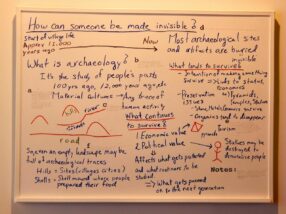 How can someone be made invisible?
Start of village life
Approx 12,000
years ago
Now
What is archaeology?
It's the study of people's past
100 yrs ago, 12,000 years ago etc
Material culture → any trace of
human activity
river
road
Seeing an empty landscape may be
full of archaeological traces
Hills = Sites (villages cities)
Shells = Shell mound where people
prepared their food
Most archaeological sites
and artifacts are buried
invisible
What tends to survive?
- Intentional making something
survive → leads to status of
- Preservation
issues
- Organics tend to disappear
What continues
to survive?
1 Economic value → Tourism
2 Political value
→ Affects what gets protected
and what continues to be
studied
→ What gets passed
on to the next generation
Statues may be
destroyed to
people
Notes: